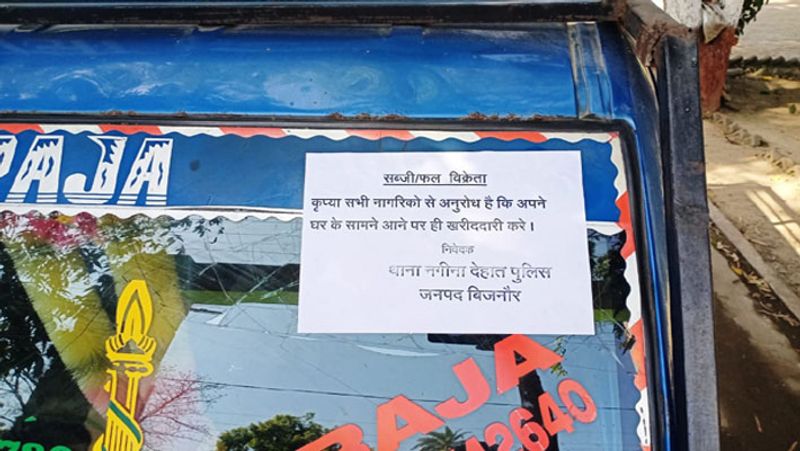 PAJA
सब्जी/फल विक्रेता
कृप्या सभी नागरिको से अनुरोध है कि अपने
घर के सामने आने पर ही खरीददारी करे ।
निवेदक
थाना नगीना देहात पुलिस
जनपद बिजनौर
BAJA
42640